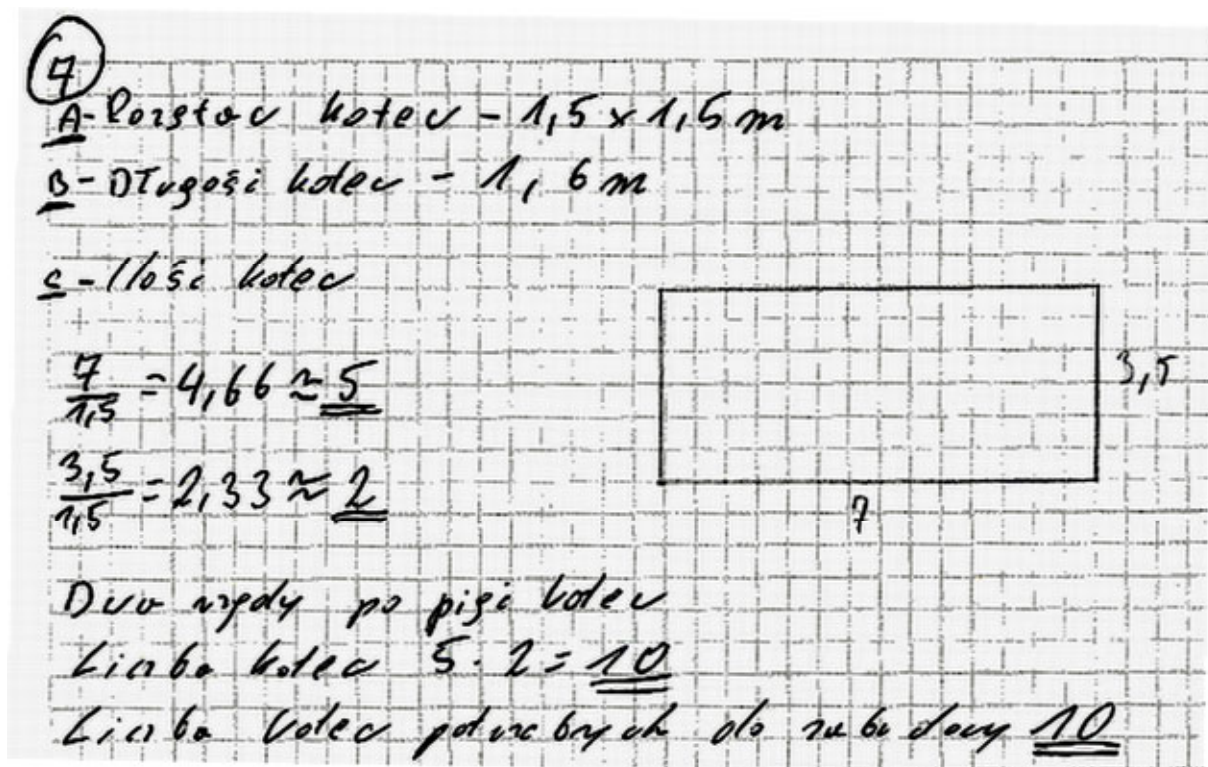 7
A - Rozstaw kotew - 1,5 x 1,5 m
B - Długość kotew - 1,6 m
C - Ilość kotew
7/1,5 = 4,66 ≈ 5
3,5/1,5 = 2,33 ≈ 2
3,5
7
Dwa rzędy po pięć kotew
Liczba kotew 5 · 2 = 10
Liczba kotew potrzebnych do zabudowy 10